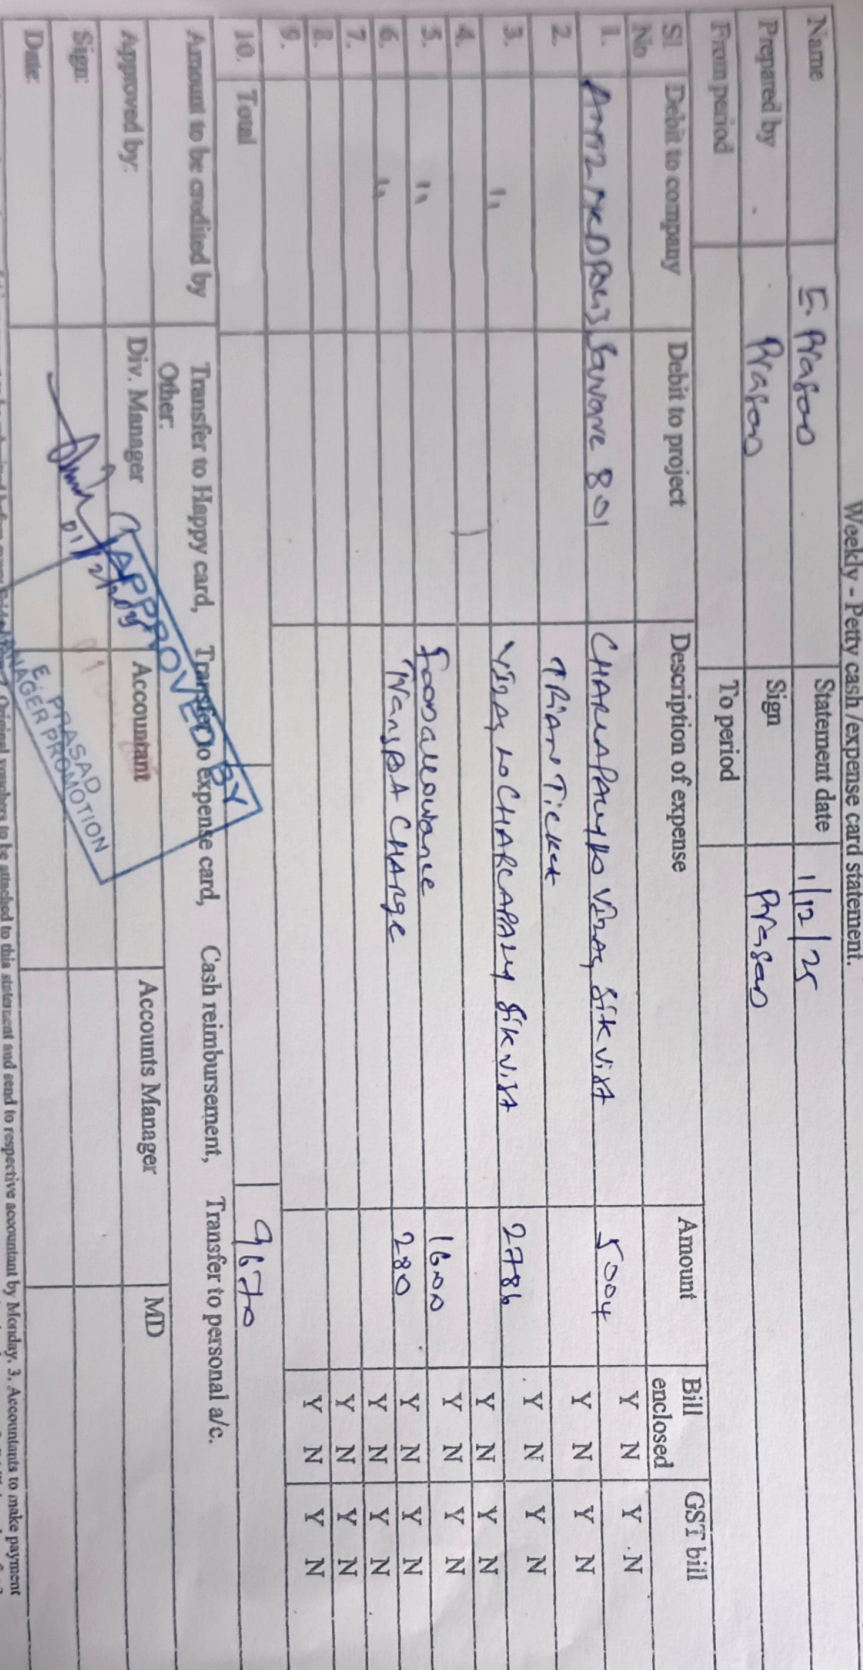 Weekly - Petty cash /expense card statement.
Name E. Prasad Statement date 1/12/25
Prepared by Prasad Sign Prasad
From period To period
Sl No Debit to company Debit to project Description of expense Amount Bill enclosed GST bill
1. Square 801 CHARLAPALLY to VIZAG Sit Visit 5004 Y N Y N
2. TRIAN Ticket Y N Y N
3. " VIZAG to CHARLAPALLY Sit Visit 2786 Y N Y N
4. Y N Y N
5. " food allowance 1600 Y N Y N
6. " Transport CHARGE 280 Y N Y N
7. Y N Y N
8. Y N Y N
9. Y N Y N
10. Total 9670
Amount to be credited by Transfer to Happy card, Transfer to expense card, Cash reimbursement, Transfer to personal a/c.
Other:
Approved by: Div. Manager Accountant Accounts Manager MD
Sign:
Date:
APPROVED BY
E. PRASAD
MANAGER PROMOTION
Original vouchers to be attached to this statement and send to respective accountant by Monday. 3. Accountants to make payment